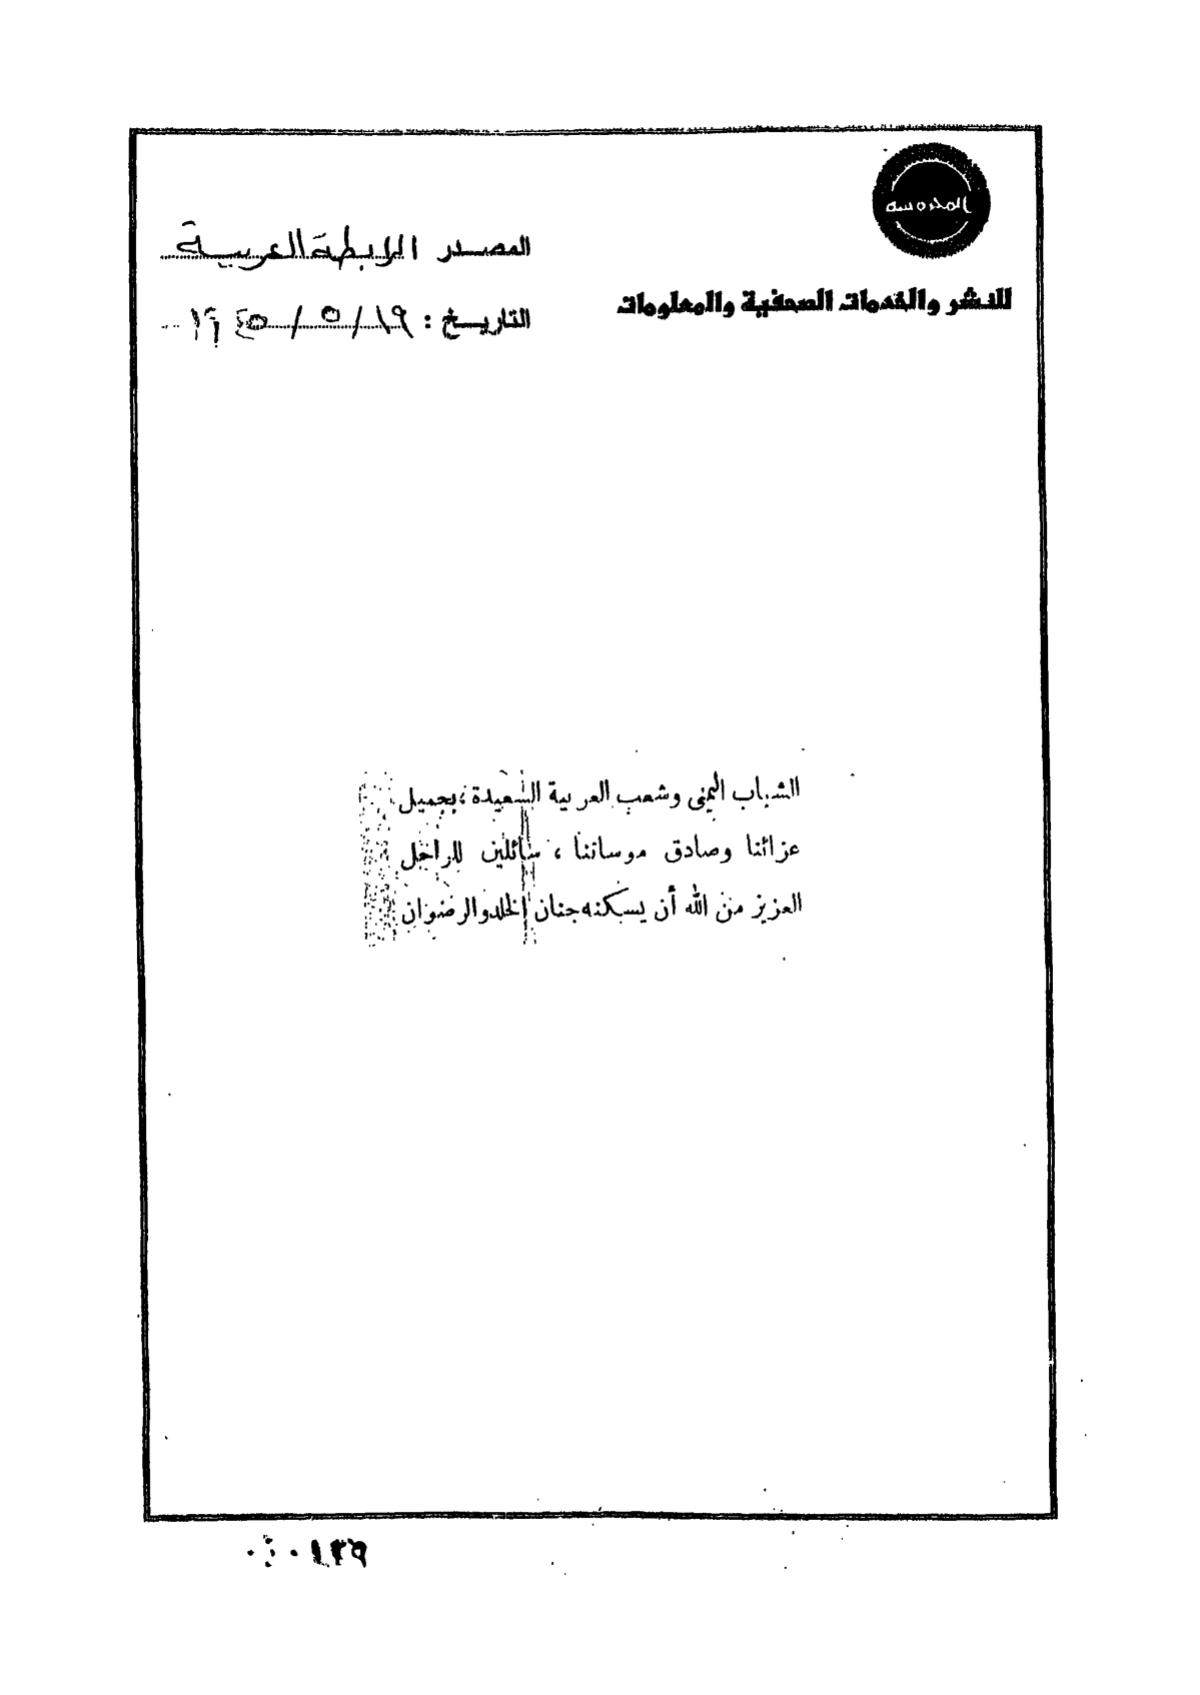 المحروسة
للنشر والخدمات الصحفية والمعلومات
المصدر الرابطة العربية
التاريخ : ١٩ / ٥ / ١٩٤٥
الشباب اليمنى وشعب العربية السعيدة ، بجميل
عزائنا وصادق موساتنا ، سائلين للراحل
العزيز من الله أن يسكنه جنان الخلد والرضوان